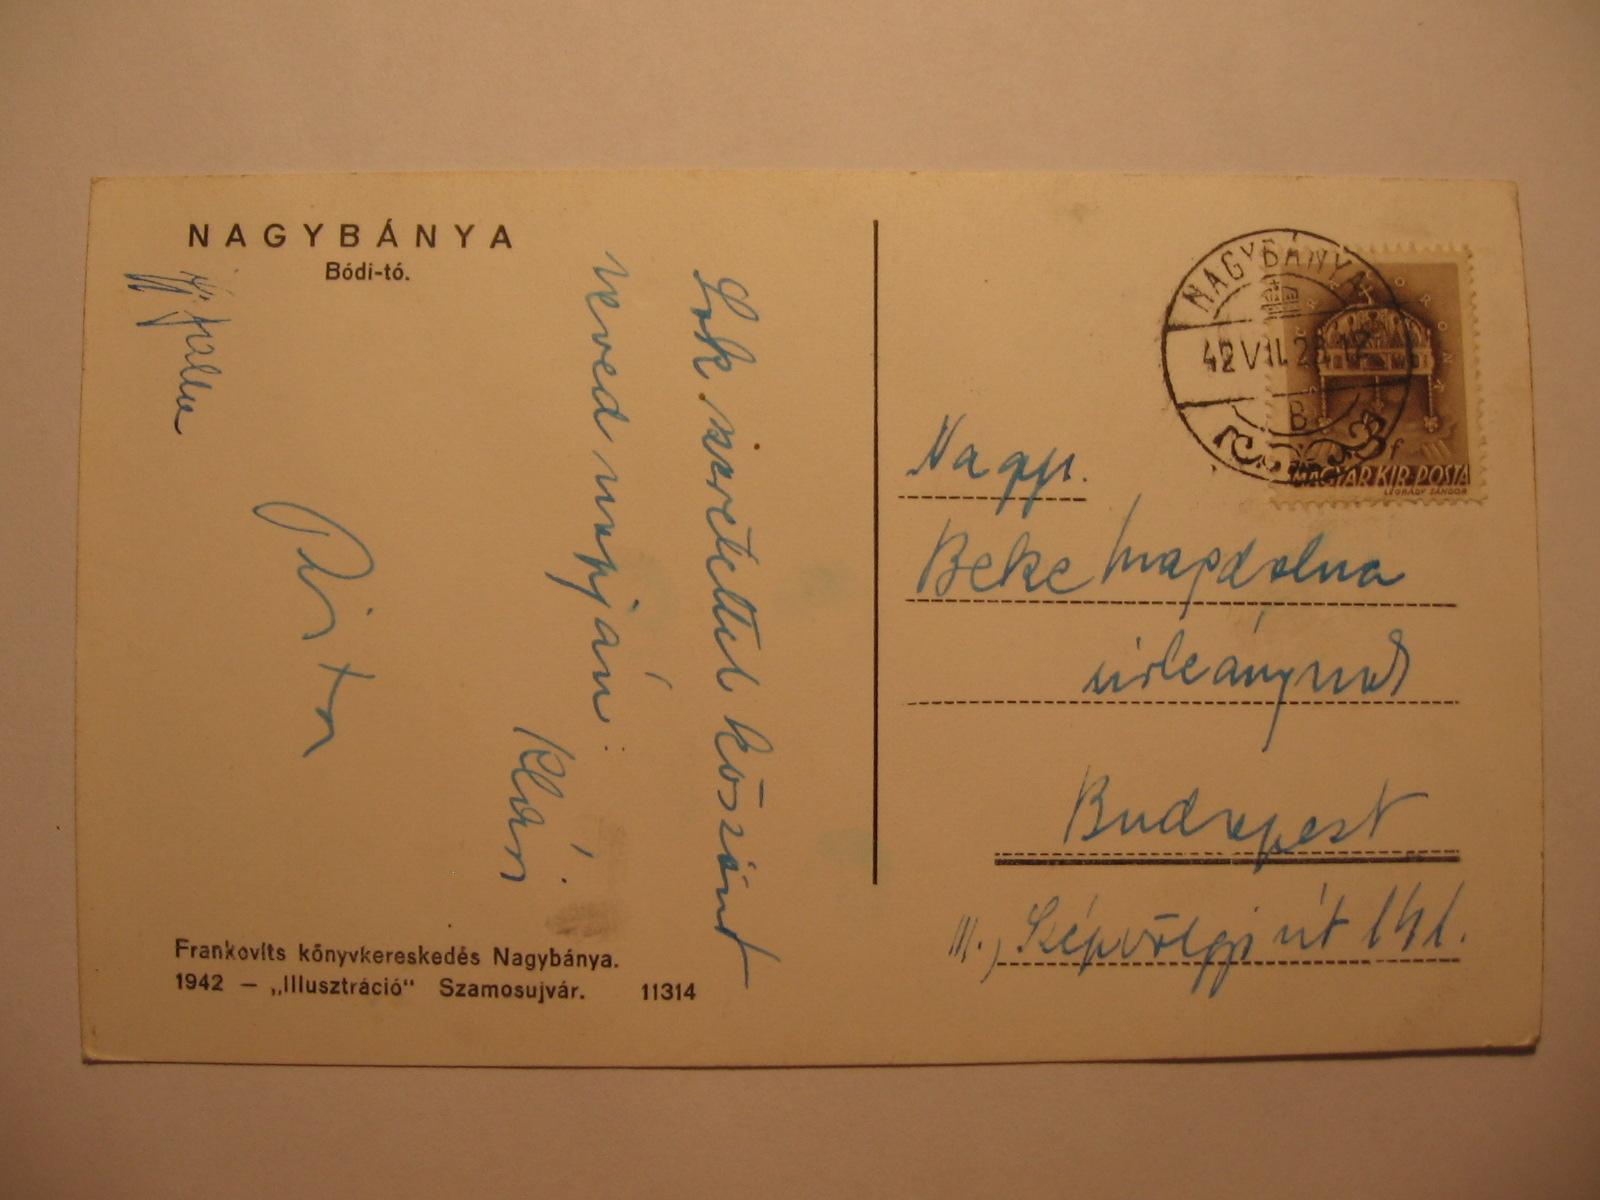 NAGYBÁNYA
Bódi-tó.
Sok szeretettel köszönt
neved napján:
Klári
Frankovits könyvkereskedés Nagybánya.
1942 – „Illusztráció“ Szamosujvár. 11314
NAGYBÁNYA
42 VII. 2
B
KORONA
f
MAGYAR KIR. POSTA
LÉGRÁDY SÁNDOR
Nagys.
Beke Magdolna
úrleánynak
Budapest
III., Szépvölgyi út 141.